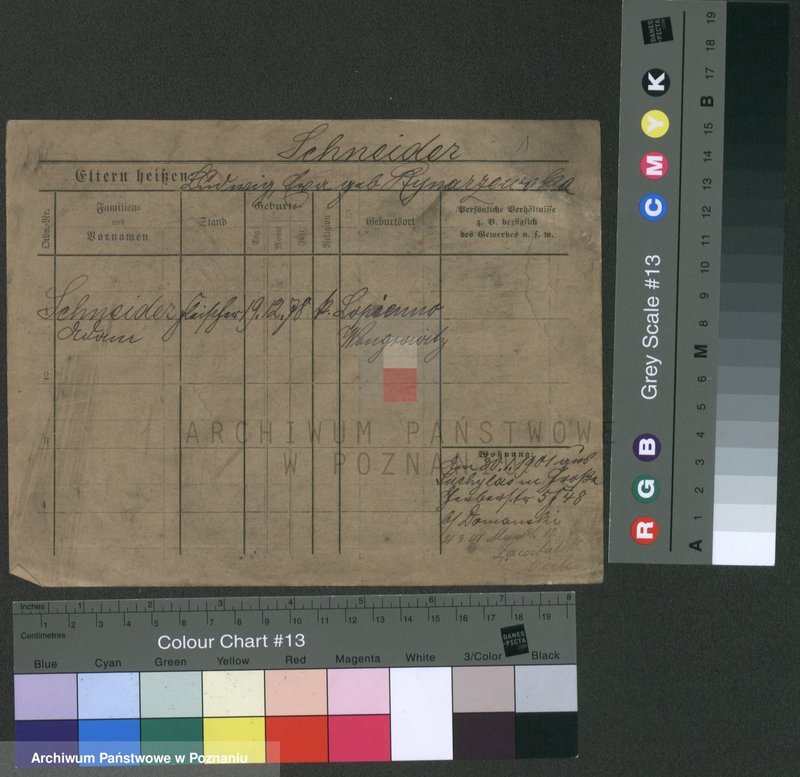 Schneider
Eltern heißen Ludwig Eva geb Rynarzewska
Ordn.-Nr.
Familien-
und
Vornamen
Stand
Geburts-
Tag
Monat
Jahr
Religion
Geburtsort
Persönliche Verhältnisse
z. B. bezüglich
des Gewerbes u. s. w.
Schneider Fleischer 19. 12. 78 k. Lopienno
Adam Wongrowitz
2
3
4
ARCHIWUM PAŃSTWOWE
W POZNANIU
Wohnung:
Am 20.1.1901 aus
in Große
Gerberstr 5 f 48
b/ Domanski
Inches 1 2 3 4 5 6 7 8
Centimetres 1 2 3 4 5 6 7 8 9 10 11 12 13 14 15 16 17 18 19
Colour Chart #13
DANES
PICTA
.COM
Blue Cyan Green Yellow Red Magenta White 3/Color Black
Archiwum Państwowe w Poznaniu
Grey Scale #13
DANES
PICTA
.COM
R G B C M Y K
A 1 2 3 4 5 6 M 8 9 10 11 12 13 14 15 B 17 18 19